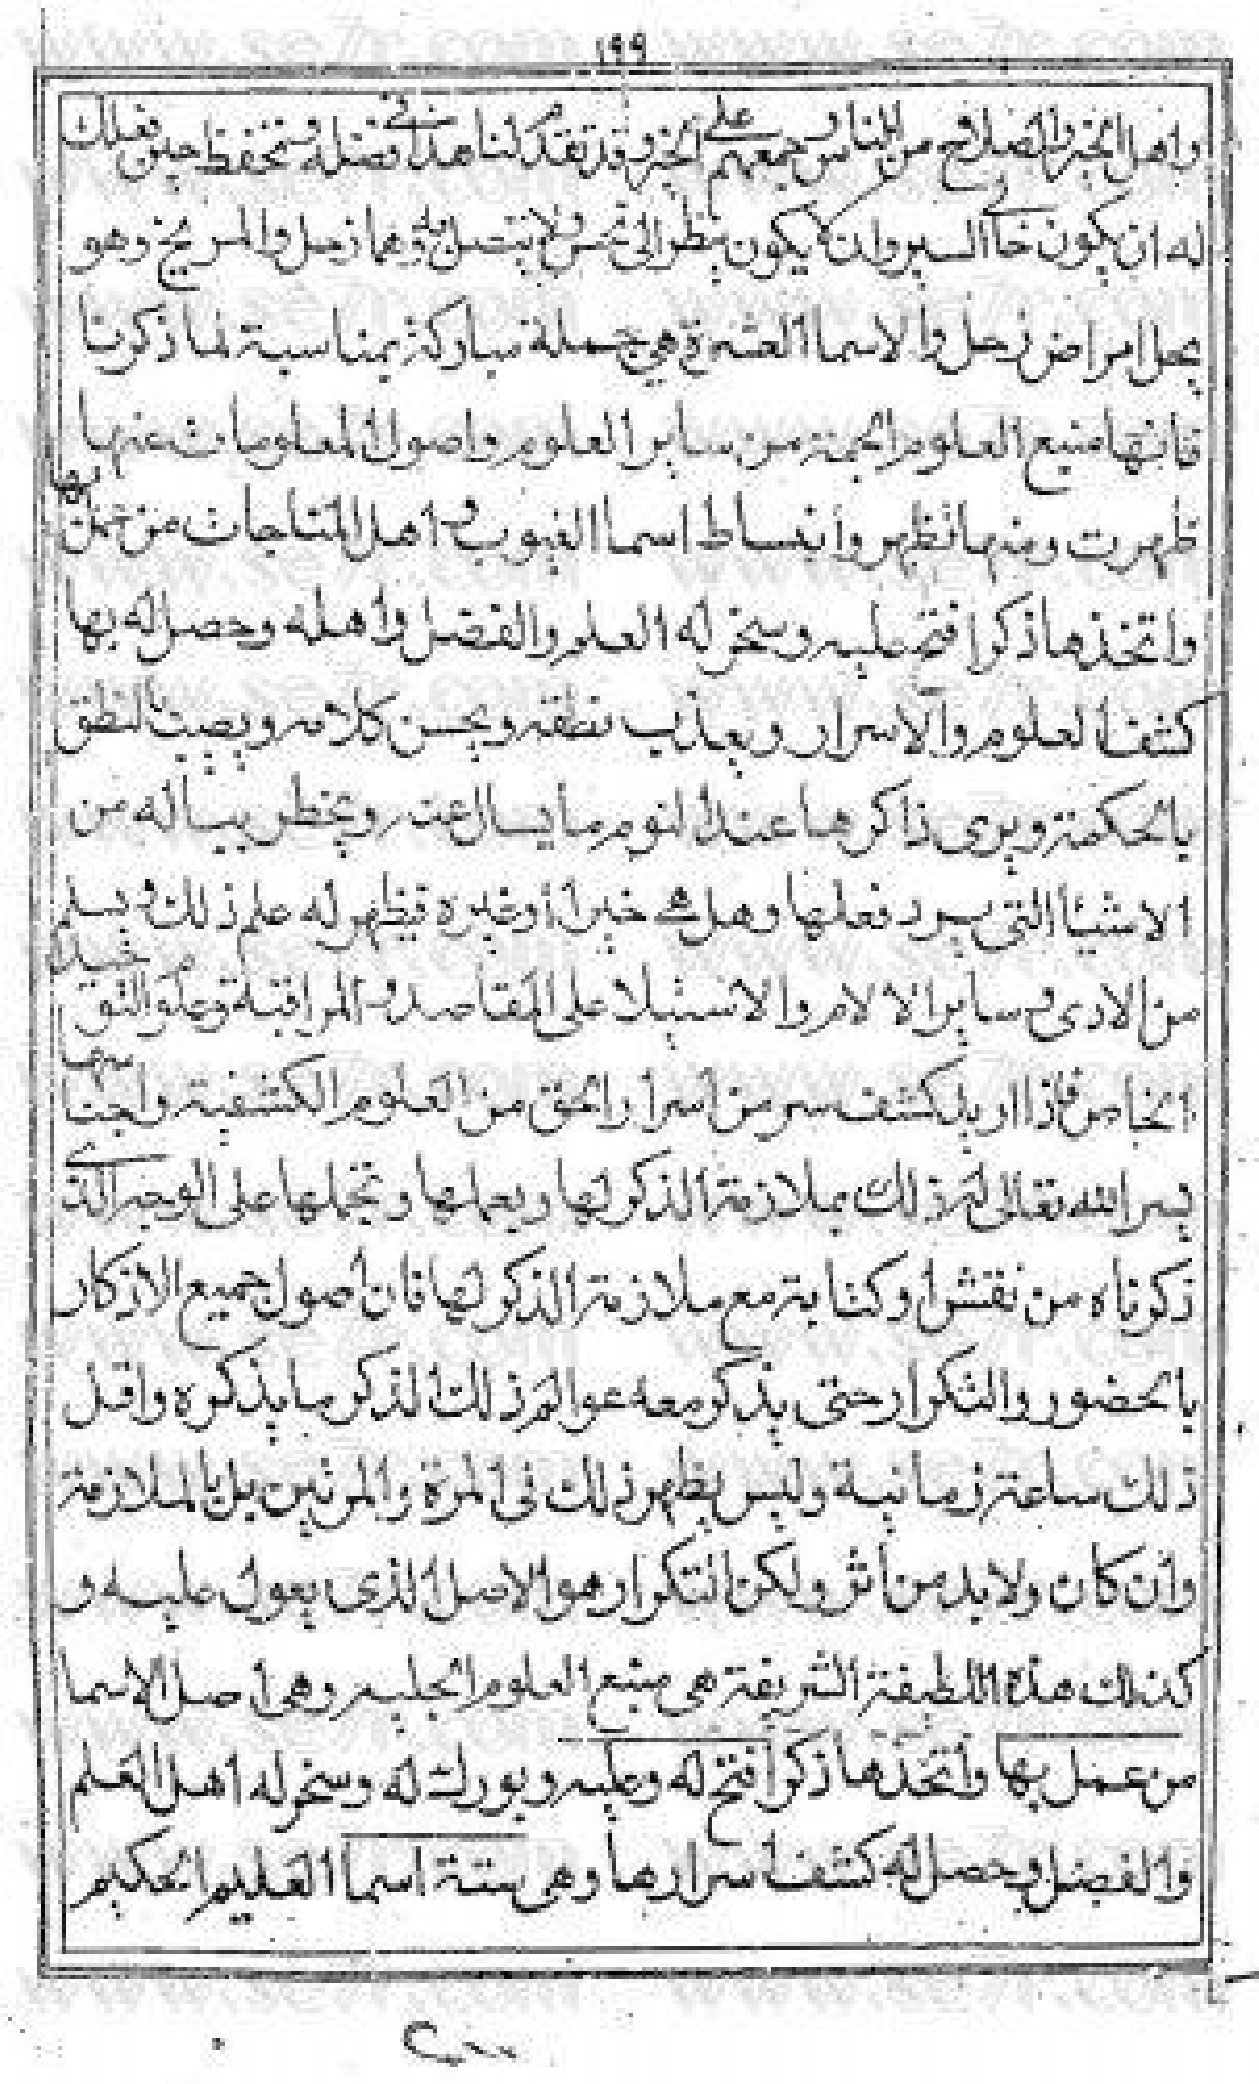 ١٩٩
واهل الخير والصلاح من الناس وجمعهم على الخير وقد تقدم لنا هذا في فصله وتحفظ حين فعلك
له ان يكون خالي السير وان لا يكون ينظر الى نحس ولا يتصل به وهما زحل والمريخ وهو
يحل امراض زحل والاسما العشرة هي جملة مباركة بمناسبة لما ذكرنا
فانها منبع العلوم الجمة من ساير العلوم واصول المعلومات عنها
ظهرت ومنها تظهر وانبساط اسما الغيوب و اهل المناجات من عمل بها
واتخذها ذكرا فتح عليه وسخر له العلم والفضل واهله وحصل له بها
كشف العلوم والاسرار ويعذب نطقه ويحسن كلامه ويصيب النطق
بالحكمة ويرى ذاكرها عند النوم ما يسال عنه ويخطر بباله من
الاشيا التى يريد فعلها وهل هي خير او غيره فيظهر له علم ذلك ويسلم
من الاذى وساير الالام والاستيلا على المقاصد و المراقبة وعلو
الخاص فاذا اريد كشف سر من اسرار الحق من العلوم الكشفية
يسر الله تعالى له ذلك بملازمة الذكر لها ويعملها ويحملها على الوجه الذي
ذكرناه من نقش او كتابة مع ملازمة الذكر لها فان اصول جميع الاذكار
بالحضور والتكرار حتى يذكر معه عوالم ذلك الذكر ما يذكره واقل
ذلك ساعة زمانية وليس يظهر ذلك فى المرة والمرتين بل بالملازمة
وان كان ولا بد من اثر ولكن التكرار هو الاصل الذى يعول عليه و
كذلك هذه اللطيفة الشريفة هى منبع العلوم الجليه وهى اصل الاسما
من عمل بها واتخذها ذكرا فتح له وعليه وبورك له وسخر له اهل العلم
والفضل وحصل له كشف اسرارها وهى ستة اسما العليم الحكيم
www.se7r.com